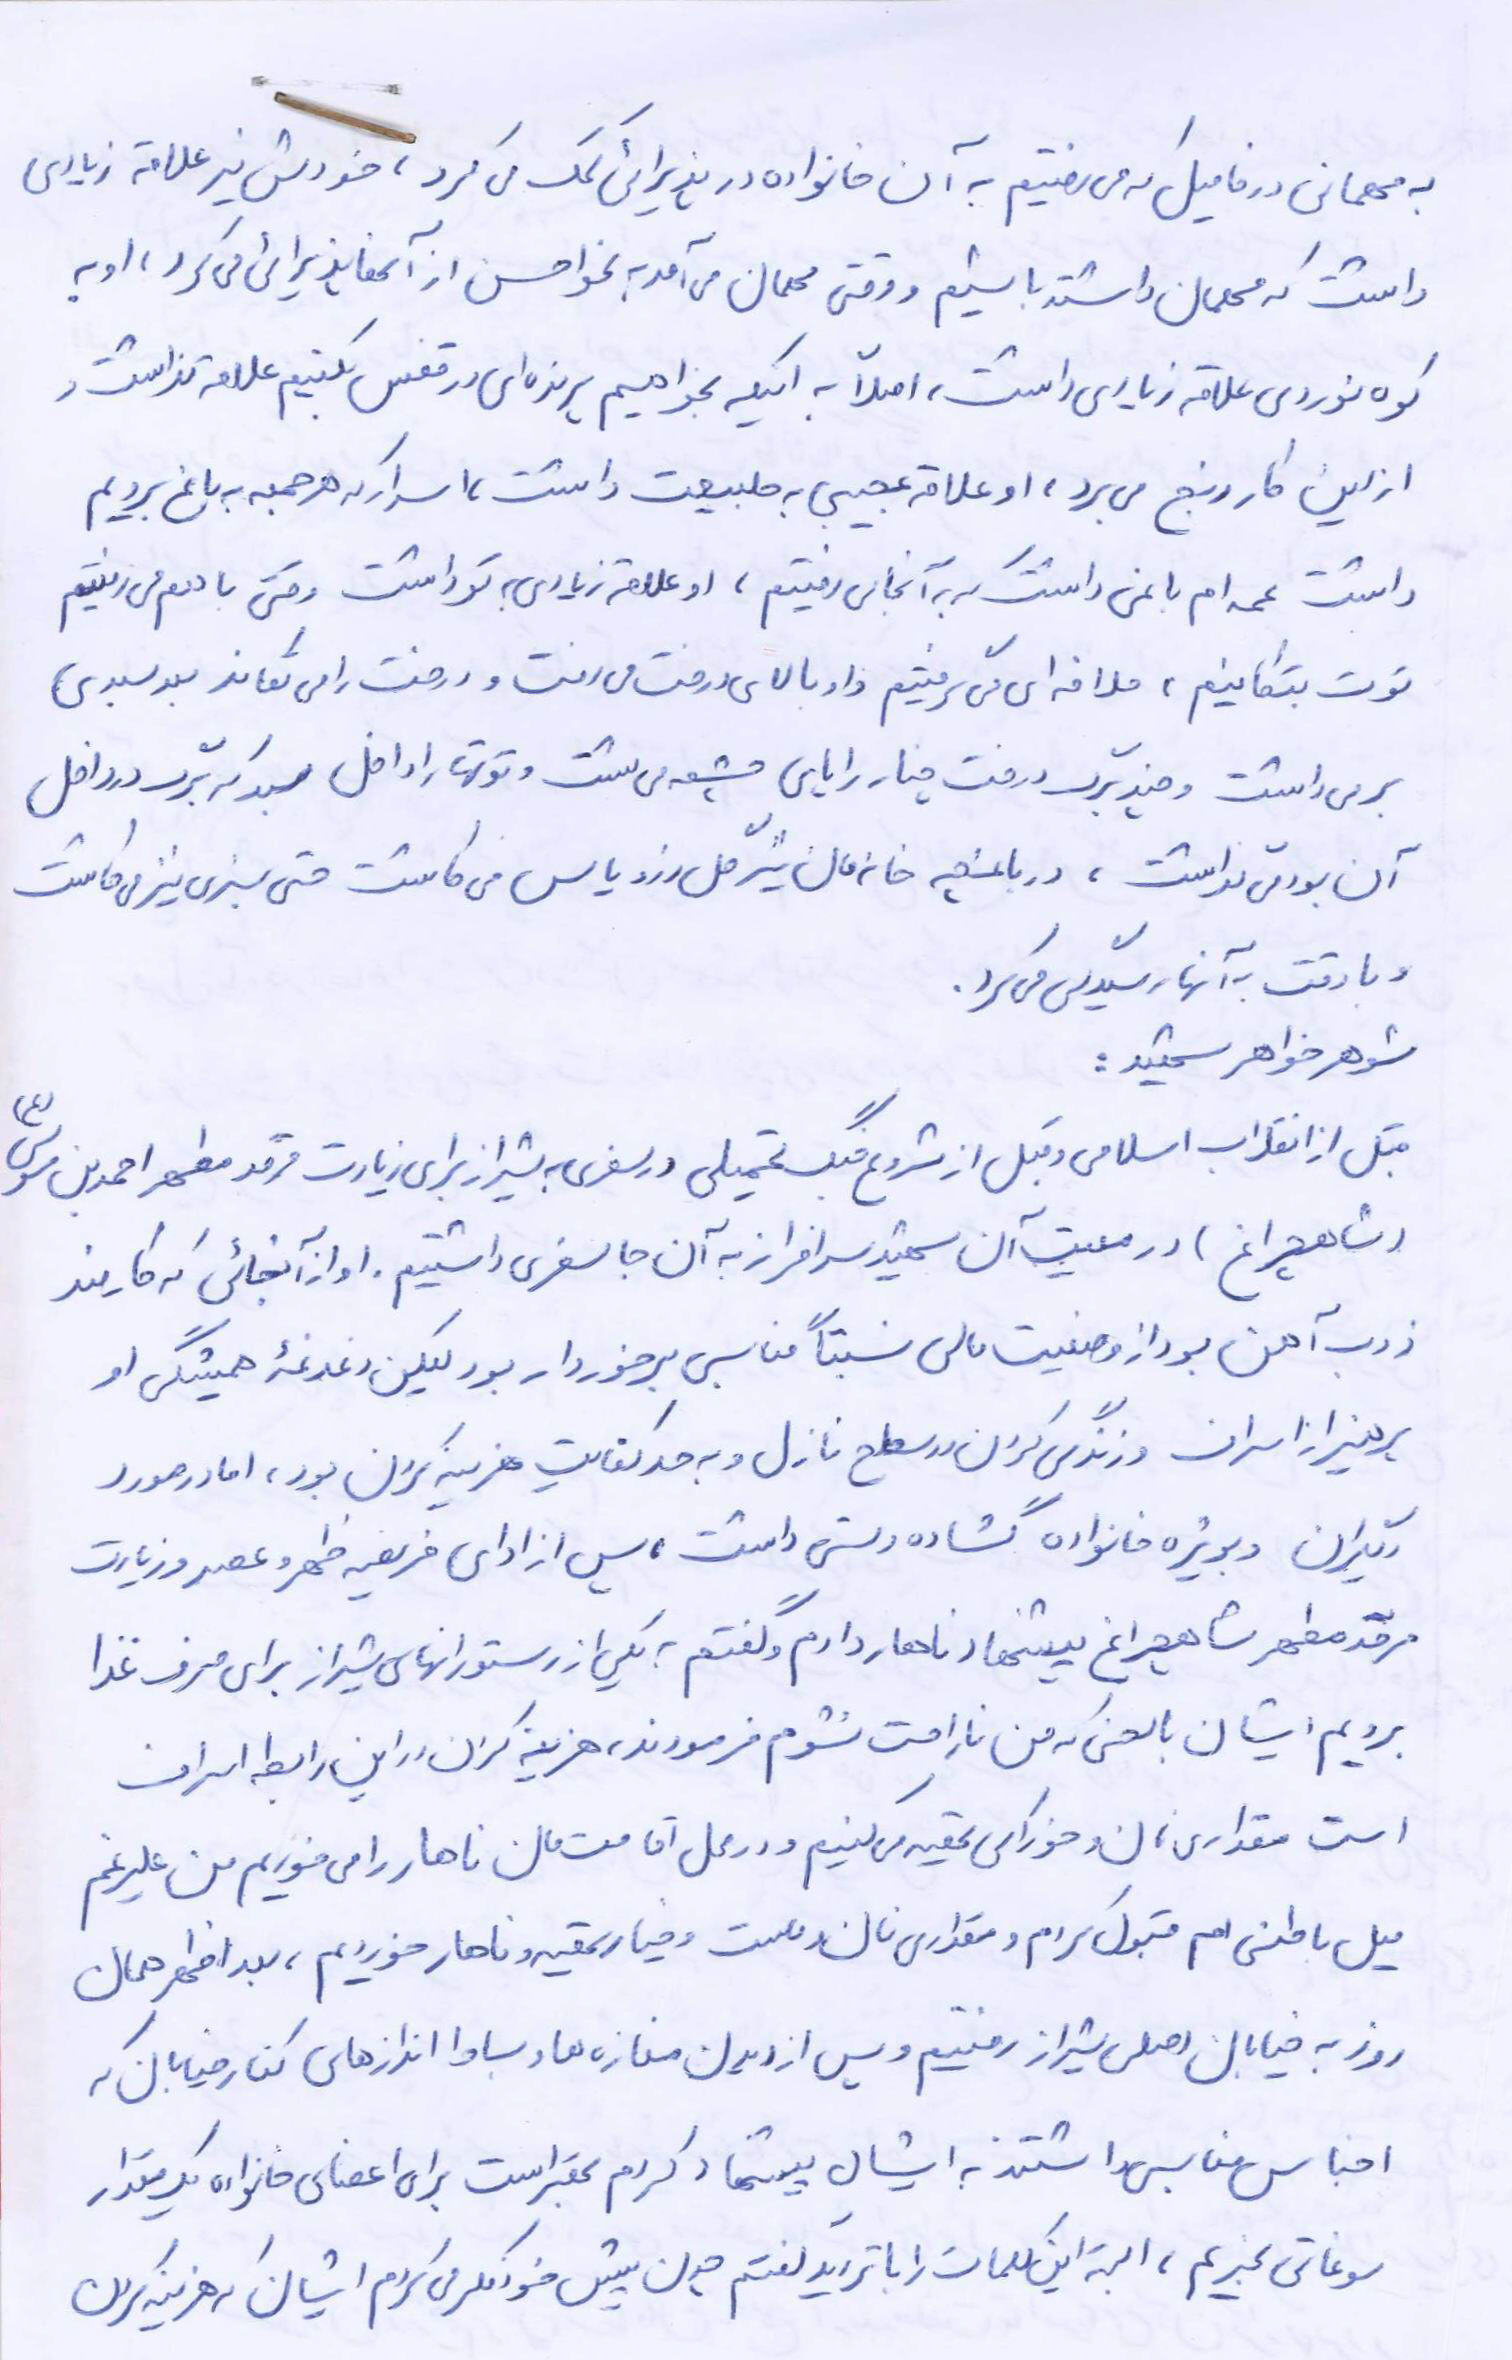 به مهمانی در فامیل که می رفتیم به آن خانواده در پذیرائی کمک می کرد، خودش نیز علاقه زیادی
داشت که مهمان داشته باشیم و وقتی مهمان می آمد به نحو احسن از آنها پذیرائی می کرد، او به
کوه نوردی علاقه زیادی داشت، اصلاً به اینکه بخواهیم پرنده ای در قفس بکنیم علاقه نداشت و
از این کار رنج می برد، او علاقه عجیبی به طبیعت داشت، اسرار که هر جمعه به باغ برویم
داشت عمه ام باغی داشت که به آنجا می رفتیم، او علاقه زیادی به توت داشت وقتی با هم می رفتیم
توت بتکانیم، ملافه ای می گرفتیم و او بالای درخت می رفت و درخت را می تکاند بعد سبدی
برمی داشت و چند برگ درخت چنار را پای چشمه می شست و توتها را داخل سبد که برگ در داخل
آن بود می گذاشت، در باغچه خانه مان نیز گل رز و یاس می کاشت حتی سبزی نیز می کاشت
و با دقت به آنها رسیدگی می کرد.
شوهر خواهر شهید:
قبل از انقلاب اسلامی و قبل از شروع جنگ تحمیلی در سفری به شیراز برای زیارت مرقد مطهر احمد بن موسی (ع)
(شاهچراغ) در معیت آن شهید سرافراز به آن جا سفری داشتیم. او از آنجائی که کارمند
ذوب آهن بود از وضعیت مالی نسبتاً مناسبی برخوردار بود لیکن دغدغۀ همیشگی او
پرهیز از اسراف و زندگی کردن در سطح نازل و به حد کفایت هزینه کردن بود، اما در مورد
دیگران و بویژه خانواده گشاده دستی داشت، پس از ادای فریضه ظهر و عصر و زیارت
مرقد مطهر شاهچراغ پیشنهاد ناهار دادم و گفتم به یکی از رستورانهای شیراز برای صرف غذا
برویم ایشان با لحنی که من ناراحت نشوم فرمودند، هزینه کردن در این رابطه اسراف
است مقداری نان و خوراکی تهیه می کنیم و در محل اقامت مان ناهار را می خوریم من علیرغم
میل باطنی ام قبول کردم و مقداری نان و ماست و خیار تهیه و ناهار خوردیم، بعد از ظهر همان
روز به خیابان اصلی شیراز رفتیم و پس از دیدن مغازه ها و بساط اندازهای کنار خیابان که
اجناس مناسبی داشتند به ایشان پیشنهاد کردم بهتر است برای اعضای خانواده یک مقدار
سوغاتی بخریم، البته این کلمات را با تردید گفتم چون پیش خود فکر می کردم ایشان که هزینه کردن